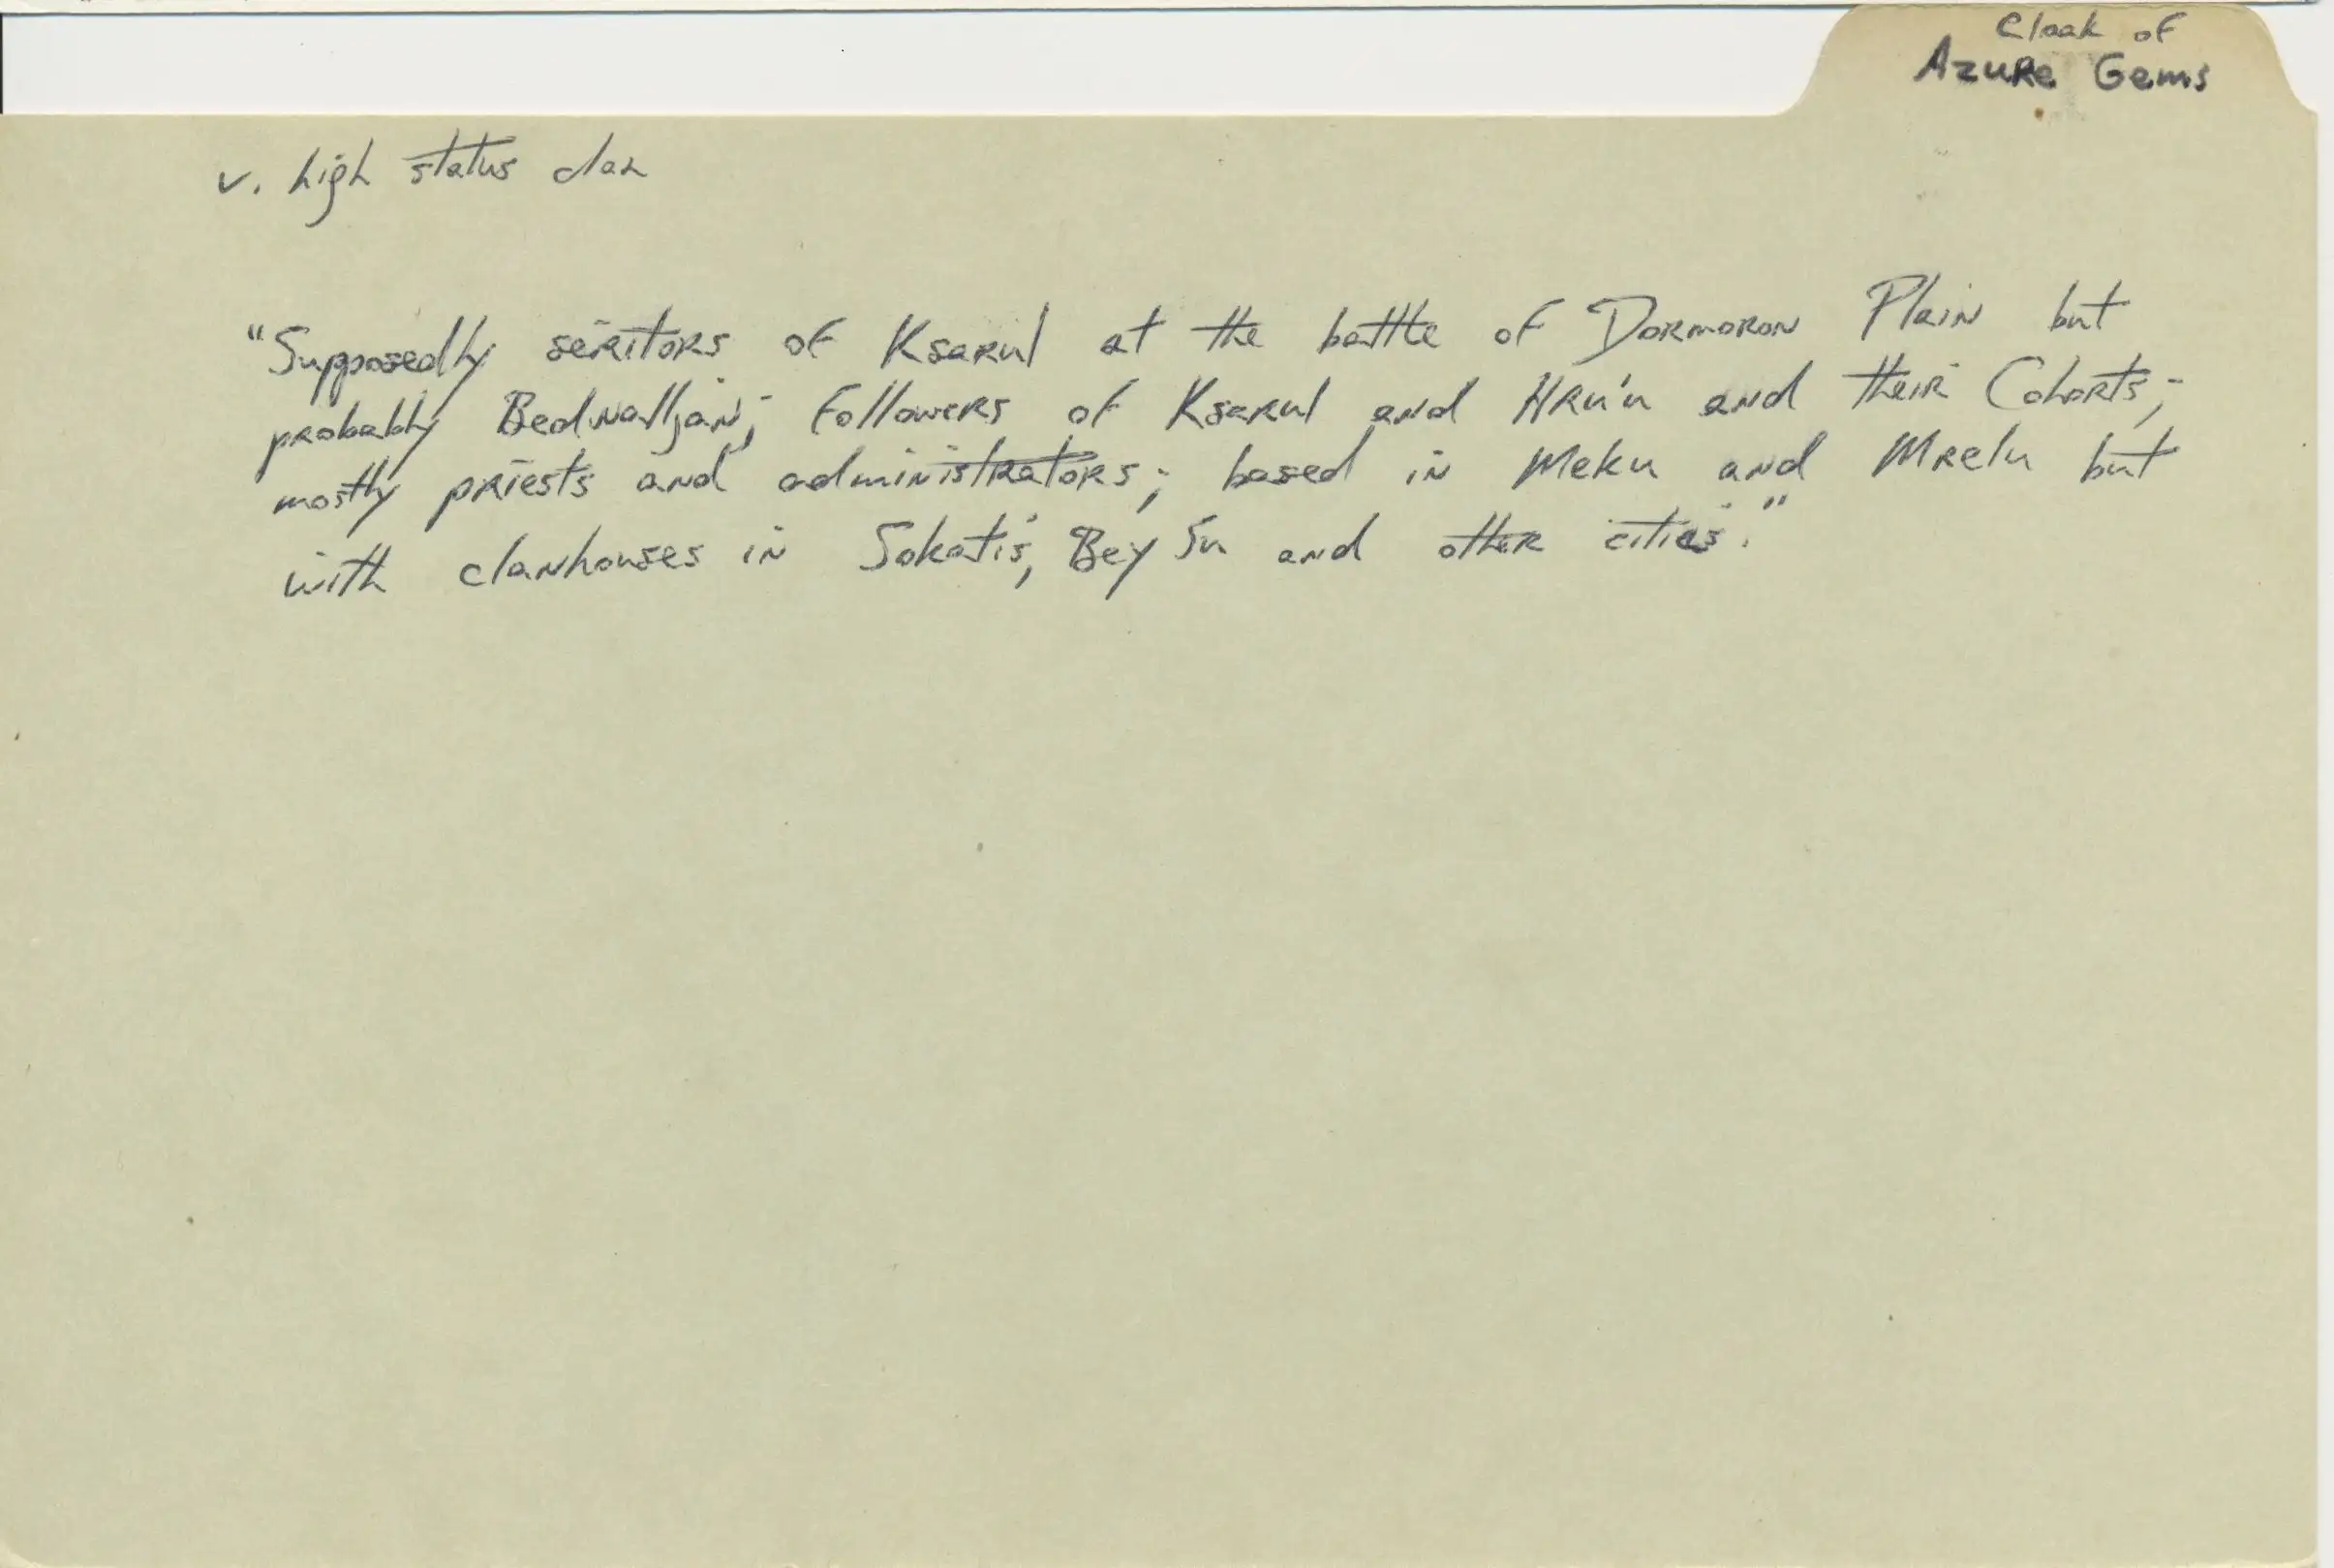 Cloak of
Azure Gems
v. high status clan
"Supposedly seritors of Ksarul at the battle of Dormoron Plain but
probably Bednalljan; followers of Ksarul and Hrü'ü and their Cohorts;
mostly priests and administrators; based in Meku and Mrelu but
with clanhouses in Sokatis, Bey Sü and other cities."